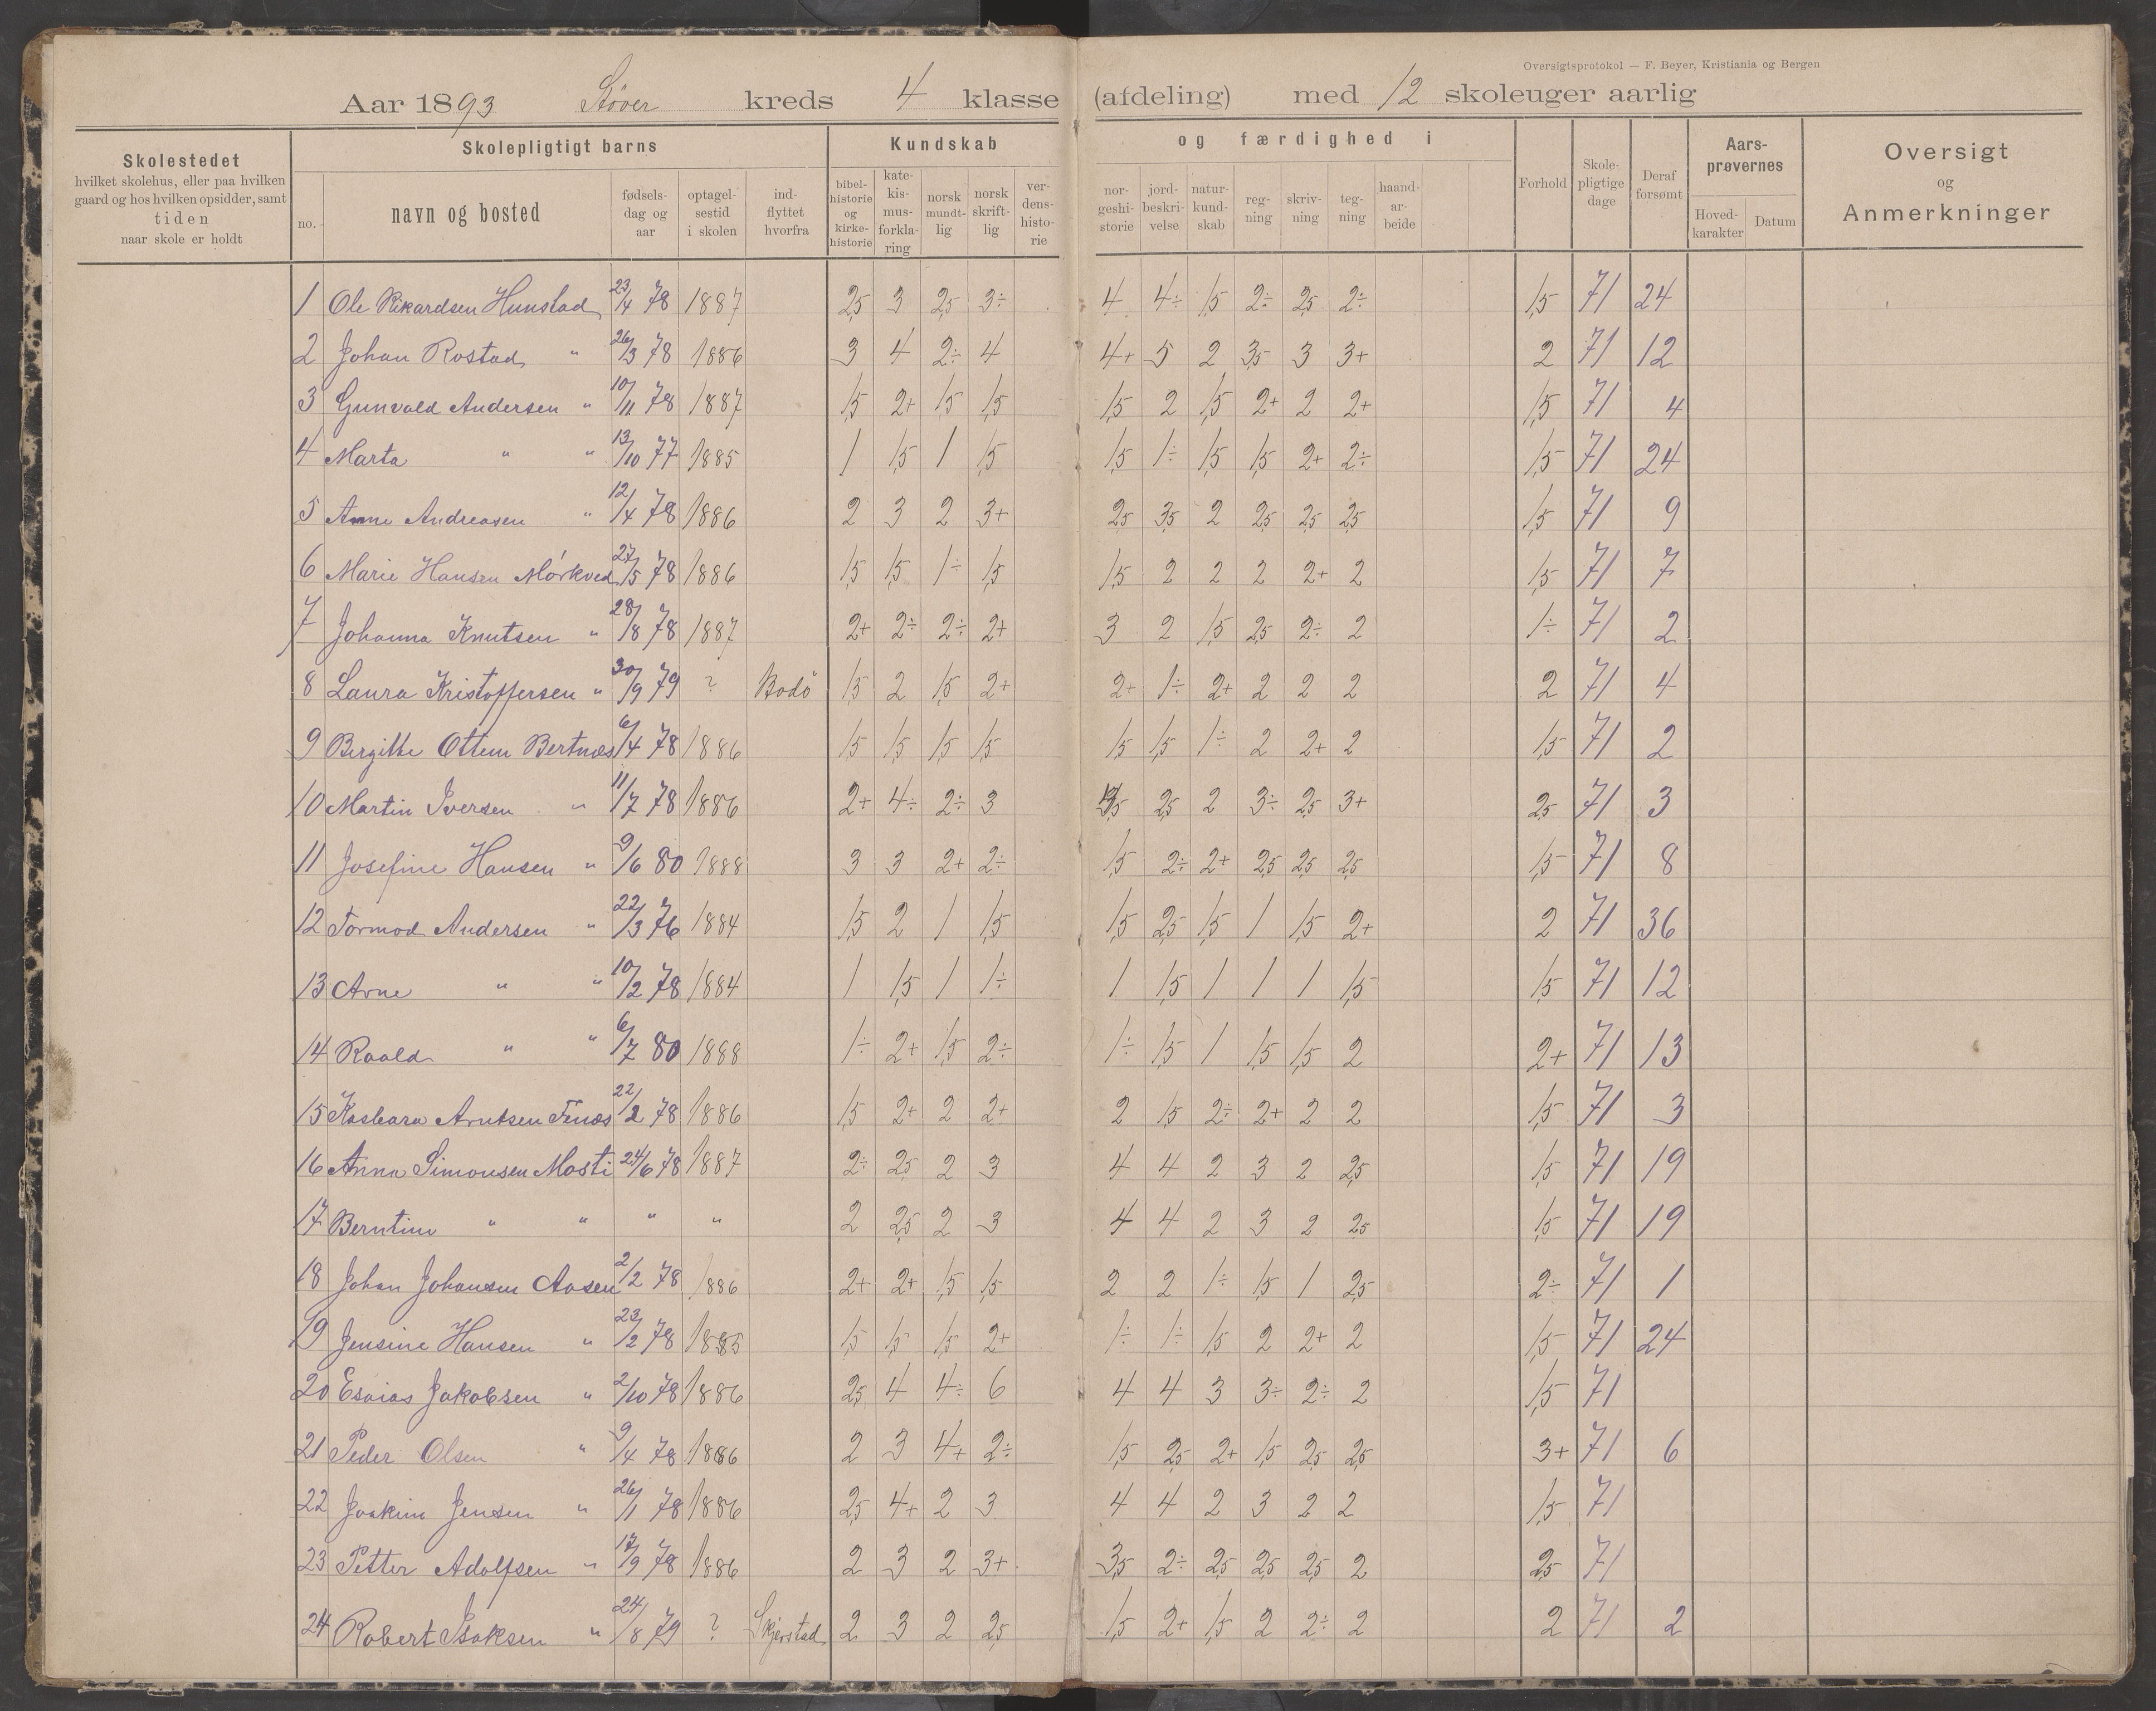 Oversigtsprotokol — F. Beyer, Kristiania og Bergen
Aar 1893 Støver kreds 4 klasse (afdeling) med 12 skoleuger aarlig
Skolestedet
hvilket skolehus, eller paa hvilken
gaard og hos hvilken opsidder, samt
tiden
naar skole er holdt
Skolepligtigt barns
no.
navn og bosted
fødsels-
dag og
aar
optagel-
sestid
i skolen
ind-
flyttet
hvorfra
Kundskab
bibel-
historie
og
kirke-
historie
kate-
kis-
mus-
forkla-
ring
norsk
mundt-
lig
norsk
skrift-
lig
ver-
dens-
histo-
rie
og færdighed i
nor-
geshi-
storie
jord-
beskri-
velse
natur-
kund-
skab
reg-
ning
skriv-
ning
teg-
ning
haand-
ar-
beide
Forhold
Skole-
pligtige
dage
Deraf
forsømt
Aars-
prøvernes
Hoved-
karakter
Datum
Oversigt
og
Anmerkninger
1 Ole Rikardsen Hunstad 23/4 78 1887 2,5 3 2,5 3÷ 4 4÷ 1,5 2÷ 2,5 2÷ 1,5 71 24
2 Johan Rostad " 26/3 78 1886 3 4 2÷ 4 4+ 5 2 3,5 3 3+ 2 71 12
3 Gunvald Andersen " 10/11 78 1887 1,5 2+ 1,5 1,5 1,5 2 1,5 2+ 2 2+ 1,5 71 4
4 Marta " " 13/10 77 1885 1 1,5 1 1,5 1,5 1÷ 1,5 1,5 2+ 2÷ 1,5 71 24
5 Anne Andreasen " 12/4 78 1886 2 3 2 3+ 2,5 3,5 2 2,5 2,5 2,5 1,5 71 9
6 Marie Hansen Mörkved 27/5 78 1886 1,5 1,5 1÷ 1,5 1,5 2 2 2 2+ 2 1,5 71 7
7 Johanna Knutsen " 28/8 78 1887 2+ 2÷ 2÷ 2+ 3 2 1,5 2,5 2÷ 2 1÷ 71 2
8 Laura Kristoffersen " 30/9 79 ? Bodö 1,5 2 1,5 2+ 2+ 1÷ 2+ 2 2 2 2 71 4
9 Bergitte Ottem Bertnæs 6/4 78 1886 1,5 1,5 1,5 1,5 1,5 1,5 1÷ 2 2+ 2 1,5 71 2
10 Martin Iversen " 11/7 78 1886 2+ 4÷ 2÷ 3 2,5 2 3÷ 2,5 3+ 2,5 71 3
11 Josefine Hansen " 9/6 80 1888 3 3 2+ 2÷ 1,5 2÷ 2+ 2,5 2,5 2,5 1,5 71 8
12 Tormod Andersen " 22/3 76 1884 1,5 2 1 1,5 1,5 2,5 1,5 1 1,5 2+ 2 71 36
13 Arne " " 10/2 78 1884 1 1,5 1 1÷ 1 1,5 1 1 1 1,5 1,5 71 12
14 Roald " " 6/7 80 1888 1÷ 2+ 1,5 2÷ 1÷ 1,5 1 1,5 1,5 2 2+ 71 13
15 Kasbara Arntsen Finæs 22/2 78 1886 1,5 2+ 2 2+ 2 1,5 2÷ 2+ 2 2 1,5 71 3
16 Anna Simonsen Mosti 24/6 78 1887 2÷ 2,5 2 3 4 4 2 3 2 2,5 1,5 71 19
17 Berntine " " " " 2 2,5 2 3 4 4 2 3 2 2,5 1,5 71 19
18 Johan Johansen Aasen 2/2 78 1886 2+ 2+ 1,5 1,5 2 2 1÷ 1,5 1 2,5 2÷ 71 1
19 Jensine Hansen " 23/2 78 1885 1,5 1,5 1,5 2+ 1÷ 1÷ 1,5 2 2+ 2 1,5 71 24
20 Esaias Jakobsen " 2/10 78 1886 2,5 4 4÷ 6 4 4 3 3÷ 2÷ 2 1,5 71
21 Peder Olsen " 9/4 78 1886 2 3 4+ 2÷ 1,5 2,5 2+ 1,5 2,5 2,5 3+ 71 6
22 Joakim Jensen " 26/1 78 1886 2,5 4+ 2 3 4 4 2 3 2 2 1,5 71
23 Petter Adolfsen " 17/9 78 1886 2 3 2 3+ 3,5 2÷ 2,5 2,5 2,5 2 2,5 71
24 Robert Isaksen " 24/8 79 ? Skjerstad 2 3 2 2,5 1,5 2+ 1,5 2 2÷ 2 2 71 2